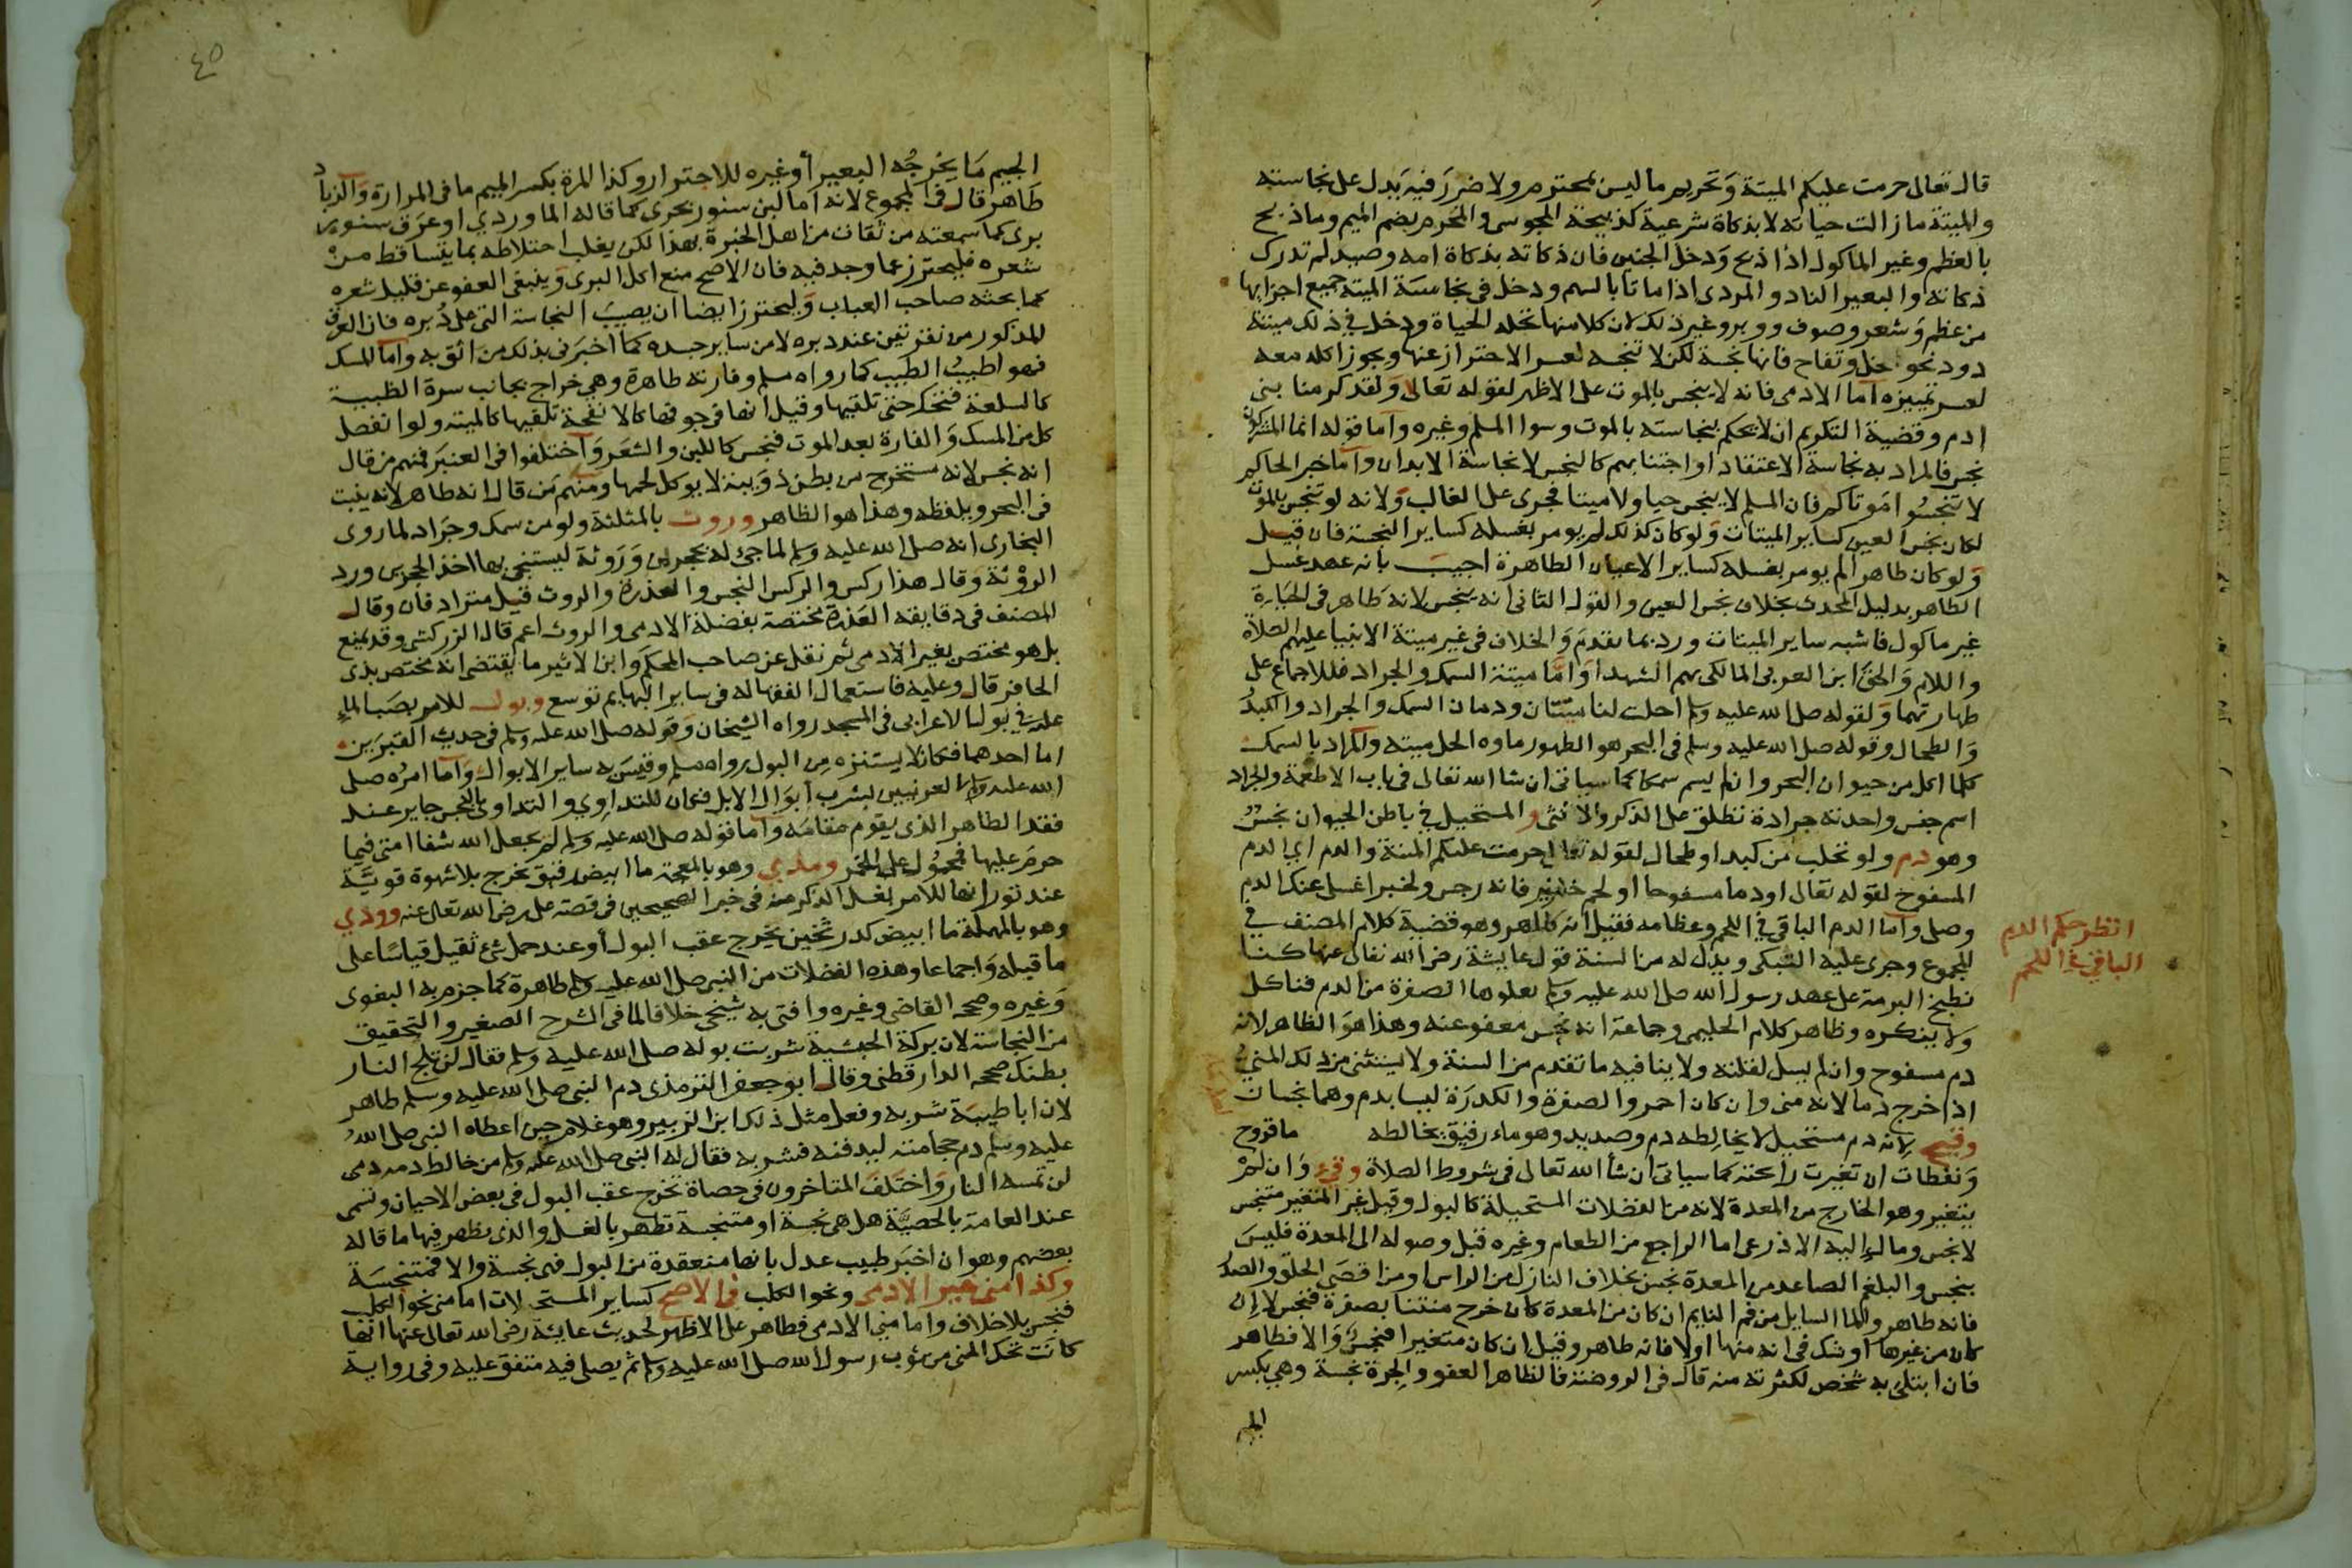 قال تعالى حرمت عليكم الميتة وتحريم ما ليس بمحترم ولا ضرر فيه يدل على نجاسته
والميتة ما زالت حياته لا بذكاة شرعية كذبيحة المجوسي والمحرم بضم الميم وما ذبح
بالعظم وغير الماكول اذا ذبح ودخل الجنين فان ذكاته بذكاة امه وصيد لم تدرك
ذكاته والبعير الناد والمردى اذا ماتا بالسهم ودخل في نجاسة الميتة جميع اجزايها
من عظم وشعر وصوف ووبر وغير ذلك لان كلا منها تحله الحياة ودخل في ذلك ميتة
دود نحو خل وتفاح فانها نجسة لكن لا تنجسه لعسر الاحتراز عنها ويجوز اكله معه
لعسر تمييزه اما الادمي فانه لا ينجس بالموت على الاظهر لقوله تعالى ولقد كرمنا بني
ادم وقضية التكريم ان لا يحكم بنجاسته بالموت وسوا المسلم وغيره واما قوله انما المشركون
نجس فالمراد به نجاسة الاعتقاد او اجتنابهم كالنجس لا نجاسة الابدان واما خبر الحاكم
لا تنجسوا موتاكم فان المسلم لا ينجس حيا ولا ميتا فجرى على الغالب ولانه لو تنجس بالموت
لكان نجس العين كساير الميتات ولو كان كذلك لم يومر بغسله كساير النجسة فان قيل
ولو كان طاهرا لم يومر بغسله كساير الاعيان الطاهرة اجيب بانه عهد غسل
الطاهر بدليل المحدث بخلاف نجس العين والقول الثاني انه ينجس لانه طاهر في الحياة
غير ماكول فاشبه ساير الميتات ورد بما تقدم والخلاف في غير ميتة الانبيا عليهم الصلاة
واللام والحق ابن العربي المالكي بهم الشهدا واما ميتة السمك والجراد فللاجماع على
طهارتهما ولقوله صلى الله عليه وسلم احلت لنا ميتتان ودمان السمك والجراد والكبد
والطحال وقوله صلى الله عليه وسلم في البحر هو الطهور ماوه الحل ميتته والمراد بالسمك
كلما اكل من حيوان البحر وان لم يسم سمكا كما سياتي ان شا الله تعالى في باب الاطعمة والجراد
اسم جنس واحدته جرادة تطلق على الذكر والانثى و المستحيل في باطن الحيوان نجس
وهو دم ولو تحلب من كبد او طحال لقوله تعالى حرمت عليكم الميتة والدم اي الدم
المسفوح لقوله تعالى او دما مسفوحا او لحم خنزير فانه رجس ولخبر اغسلي عنك الدم
وصلي واما الدم الباقي في اللحم وعظامه فقيل انه طاهر وهو قضية كلام المصنف في
المجموع وجرى عليه السبكي ويدل له من السنة قول عايشة رضي الله تعالى عنها كنا
نطبخ البرمة على عهد رسول الله صلى الله عليه وسلم تعلوها الصفرة من الدم فناكل
ولا ينكره وظاهر كلام الحليمي وجماعة انه نجس معفو عنه وهذا هو الظاهر لانه
دم مسفوح وان لم يسل لقلته ولا ينافيه ما تقدم من السنة ولا يستثنى من ذلك المني
اذا خرج دما لانه مني وان كان احمر والصفرة والكدرة ليسا بدم وهما نجسان
وقيح لانه دم مستحيل لا يخالطه دم وصديد وهو ماء رقيق يخالطه ما قروح
ونفطات ان تغيرت رائحته كما سياتي ان شا الله تعالى في شروط الصلاة وقيء وان لم
يتغير وهو الخارج من المعدة لانه من الفضلات المستحيلة كالبول وقيل غير المتغير متنجس
لا نجس ومال اليه الاذرعي اما الراجع من الطعام وغيره قبل وصوله الى المعدة فليس
بنجس والبلغم الصاعد من المعدة نجس بخلاف النازل من الراس او من اقصى الحلق والصدر
فانه طاهر والما السايل من فم النايم ان كان من المعدة كان خرج منتنا بصفرة فنجس لا ان
كان من غيرها او شك في انه منها اولا فانه طاهر وقيل ان كان متغيرا فنجس والا فطاهر
فان ابتلي به شخص لكثرته منه قال في الروضة فالظاهر العفو والجرة نجسة وهي بكسر
الجيم
انظر حكم الدم
الباقي في اللحم
٤٥
الجيم ما يخرجه البعير أو غيره للاجترار وكذا المرة بكسر الميم ما في المرارة والزباد
طاهر قال في المجموع لانه اما لبن سنور بحري كما قاله الماوردي او عرق سنور
بري كما سمعته من ثقات من اهل الخبرة بهذا لكن يغلب اختلاطه بما يتساقط من
شعره فليحترز عما وجد فيه فان الاصح منع اكل البري وينبغي العفو عن قليل شعره
كما بحثه صاحب العباب وليحترز ايضا ان يصيب النجاسة التي على دبره فان العرق
المذكور من نقرتين عند دبره لا من ساير جسده كما اخبرني بذلك من اثق به واما المسك
فهو اطيب الطيب كما رواه مسلم وفارته طاهرة وهي خراج بجانب سرة الظبية
كالسلعة فتحتك حتى تلقيها وقيل انها في جوفها كالانفحة تلقيها كالميتة ولو انفصل
كل من المسك والفارة بعد الموت فنجس كاللبن والشعر واختلفوا في العنبر فمنهم من قال
انه نجس لانه مستخرج من بطن دويبة لا يوكل لحمها ومنهم من قال انه طاهر لانه ينبت
في البحر ويلفظه وهذا هو الظاهر وروث بالمثلثة ولو من سمك وجراد لما روى
البخاري انه صلى الله عليه وسلم لما جئ له بحجرين وروثة ليستنجي بها اخذ الحجرين ورد
الروثة وقال هذا ركس والركس النجس والعذرة والروث قيل مترادفان وقال
المصنف في دقايقه العذرة مختصة بفضلة الادمي والروث اعم قال الزركشي وقد يمنع
بل هو مختص بغير الادمي ثم نقل عن صاحب المحكم وابن الاثير ما يقتضي انه مختص بذي
الحافر قال وعليه فاستعمال الفقها له في ساير البهايم توسع وبول للامر بصب الماء
عليه في بول الاعرابي في المسجد رواه الشيخان وقوله صلى الله عليه وسلم في حديث القبرين
اما احدهما فكان لا يستنزه من البول رواه مسلم وقيس به ساير الابوال واما امره صلى
الله عليه وسلم العرنيين بشرب أبوال الابل فكان للتداوي والتداوي بالنجس جايز عند
فقد الطاهر الذي يقوم مقامه واما قوله صلى الله عليه وسلم لم يجعل الله شفا امتي فيما
حرم عليها فمحمول على الخمر ومذي وهو بالمعجمة ما ابيض رقيق يخرج بلا شهوة قوية
عند ثورانها للامر بغسل الذكر منه في خبر الصحيحين في قصة علي رضي الله تعالى عنه وودي
وهو بالمهملة ما ابيض كدر ثخين يخرج عقب البول أو عند حمل شئ ثقيل قياسا على
ما قبله واجماعا وهذه الفضلات من النبي صلى الله عليه وسلم طاهرة كما جزم به البغوي
وغيره وصححه القاضي وغيره وافتى به شيخي خلافا لما في الشرح الصغير والتحقيق
من النجاسة لان بركة الحبشية شربت بوله صلى الله عليه وسلم فقال لن تلج النار
بطنك صححه الدارقطني وقال ابو جعفر الترمذي دم النبي صلى الله عليه وسلم طاهر
لان ابا طيبة شربه وفعل مثل ذلك ابن الزبير وهو غلام حين اعطاه النبي صلى الله
عليه وسلم دم حجامته ليدفنه فشربه فقال له النبي صلى الله عليه وسلم من خالط دمه دمي
لن تمسه النار واختلف المتاخرون في حصاة تخرج عقب البول في بعض الاحيان وتسمى
عند العامة بالحصية هل هي نجسة او متنجسة تطهر بالغسل والذي يظهر فيها ما قاله
بعضهم وهو ان اخبر طبيب عدل بانها منعقدة من البول فهي نجسة والا فمتنجسة
وكذا مني غير الادمي ونحو الكلب في الاصح كساير المستحيلات اما مني نحو الكلب
فنجس بلا خلاف واما مني الادمي فطاهر على الاظهر لحديث عايشة رضي الله تعالى عنها انها
كانت تحك المني من ثوب رسول الله صلى الله عليه وسلم ثم يصلي فيه متفق عليه وفي رواية